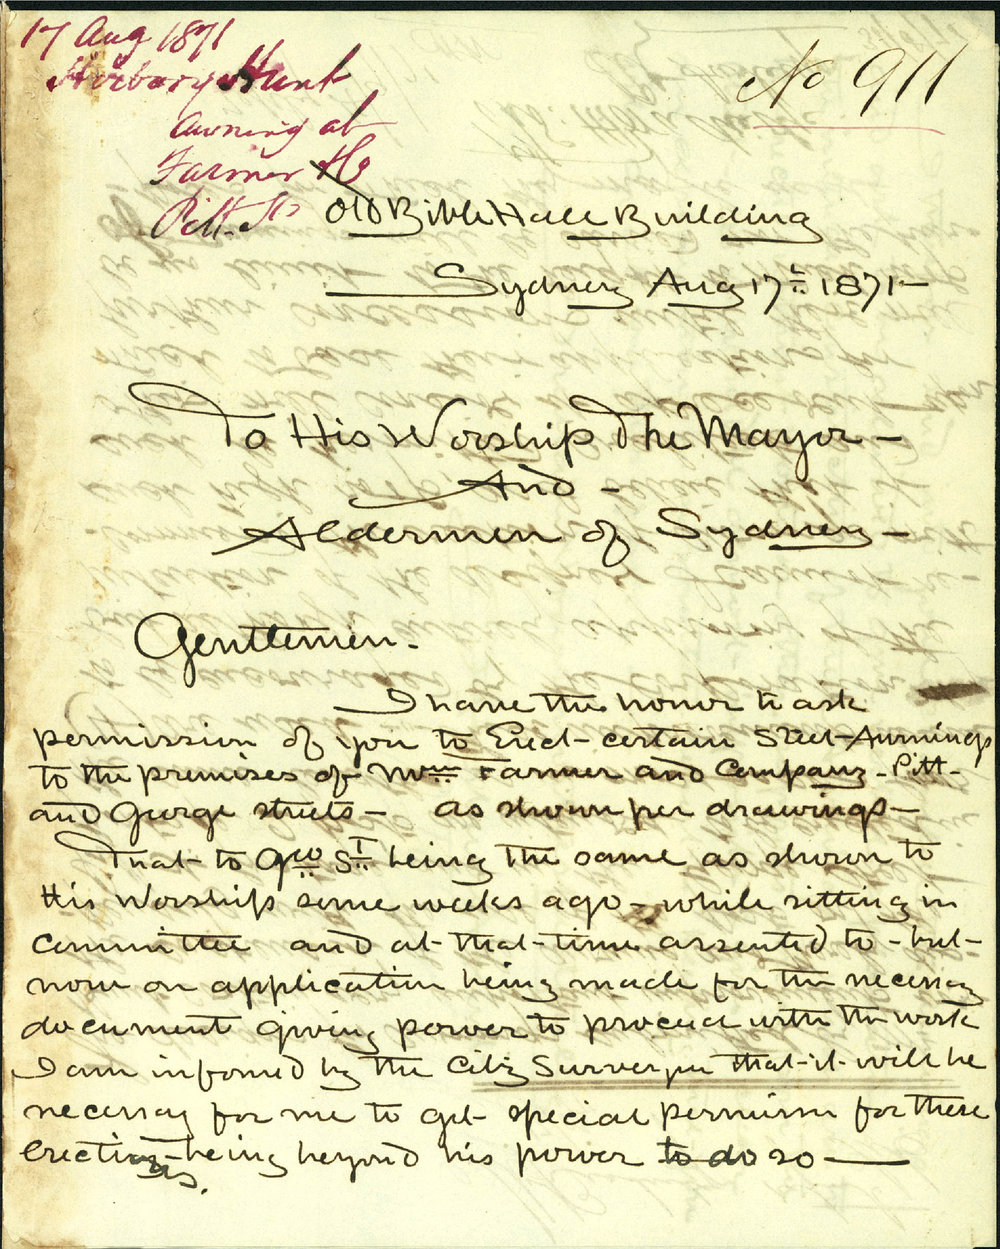 17 Aug 1871
Horbury Hunt
Awning at
Farmer & Co
Pitt St
No 911
Old Bible Hall Building
Sydney Aug 17th 1871 –
To His Worship The Mayor –
And –
Aldermen of Sydney –
Gentlemen.
I have the honor to ask
permission of you to Erect certain Street Awnings
to the premises of Wm Farmer and Company – Pitt
and George streets – as shown per drawings –
That to Geo St being the same as shown to
His Worship some weeks ago – while sitting in
committee and at that time assented to – but –
now on application being made for the necessary
document giving power to proceed with the work
I am informed by the City Surveyor that it will be
necessary for me to get special permission for these
erections – being beyond his power to do so –